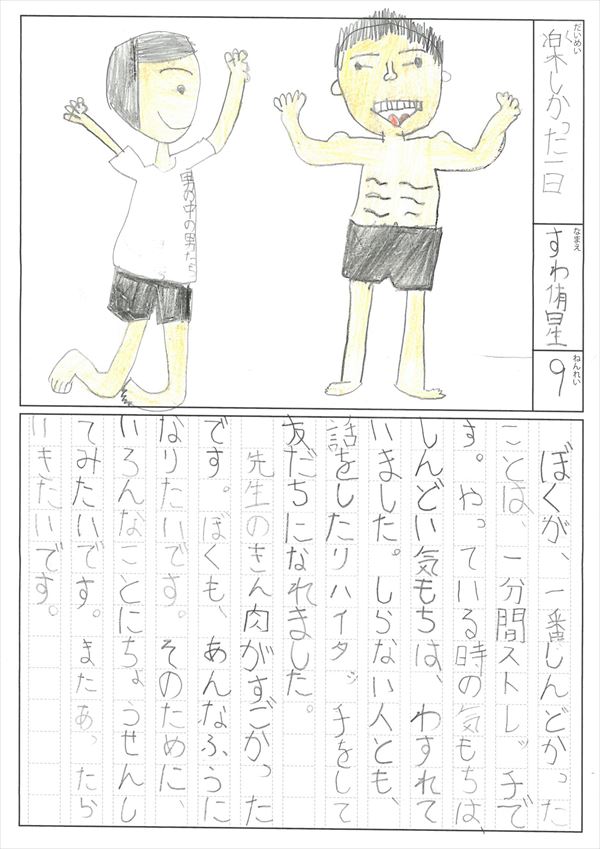 だいめい
楽しかった一日
く
なまえ
すわ侑星
ねんれい
9
男の中の男たち
ぼくが、一番しんどかった
ことは、一分間ストレッチで
す。やっている時の気もちは、
しんどい気もちは、わすれて
いました。しらない人とも、
話をしたりハイタッチをして
友だちになれました。
先生のきん肉がすごかった
です。ぼくも、あんなふうに
なりたいです。そのために、
いろんなことにちょうせんし
てみたいです。またあったら
いきたいです。